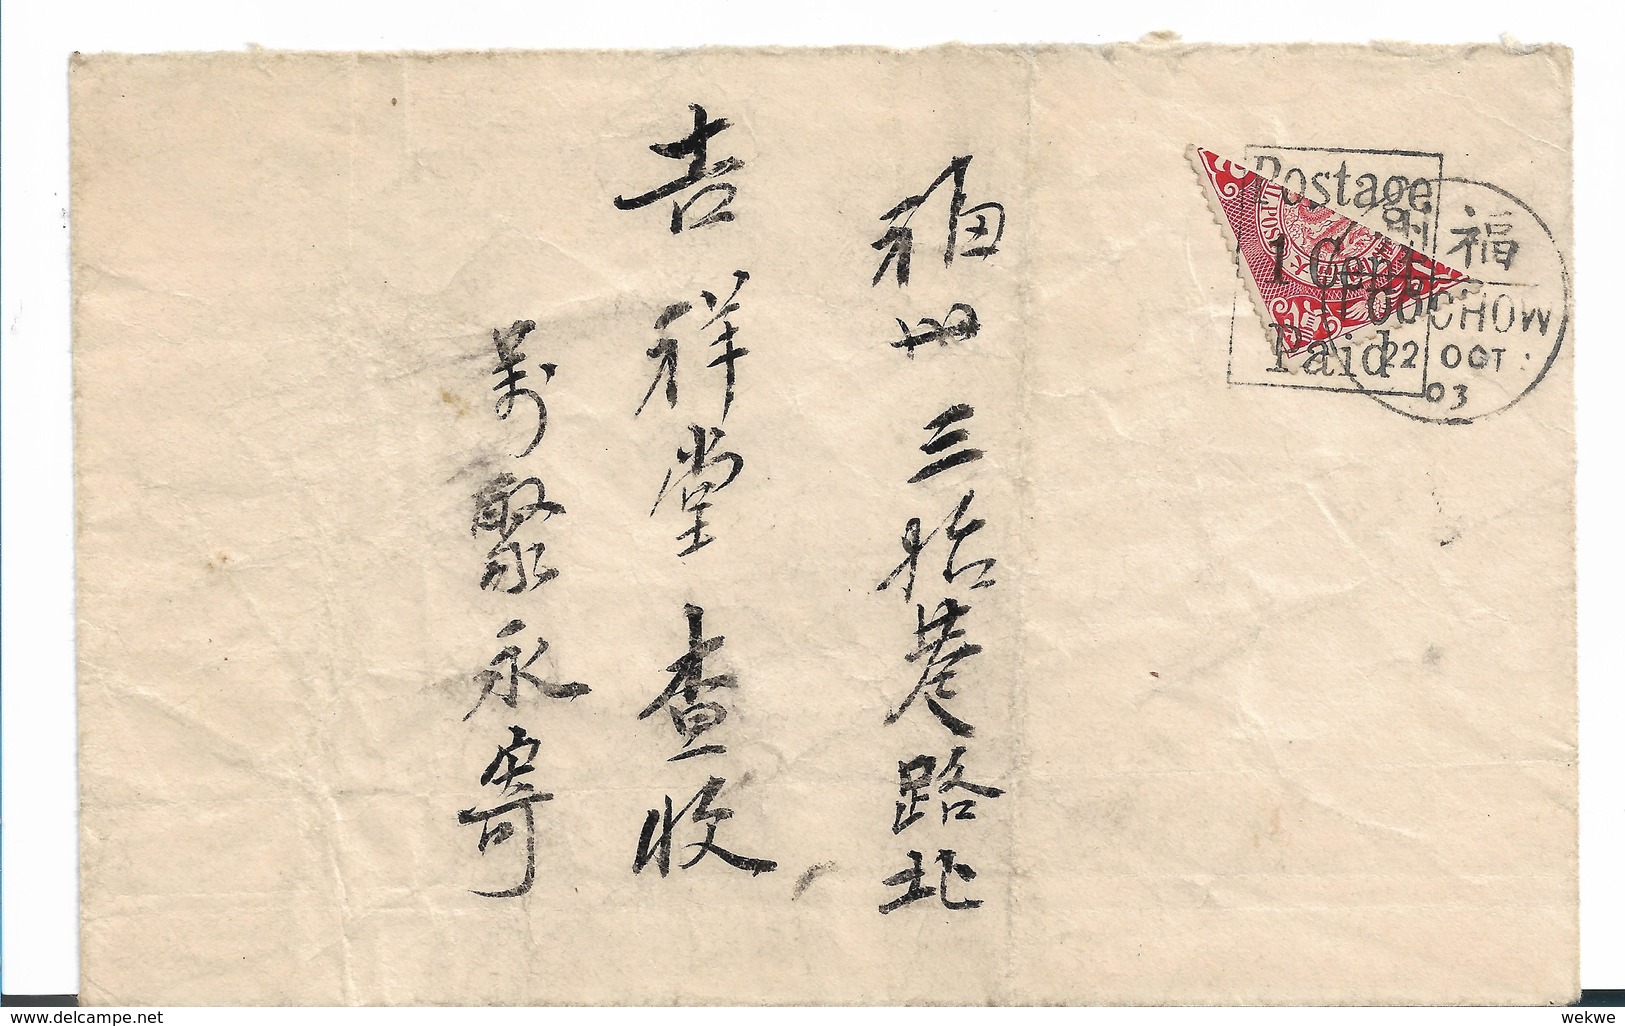 福州三拾巷路北
吉祥堂查收
萬聚永寄
Postage
1 Cent
Paid
福州
FOOCHOW
22 OCT
03
www.delcampe.net
wekwe